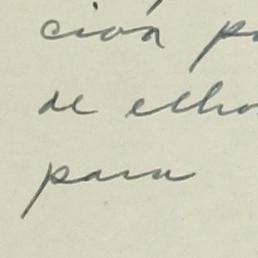 ción p
de ellho
para